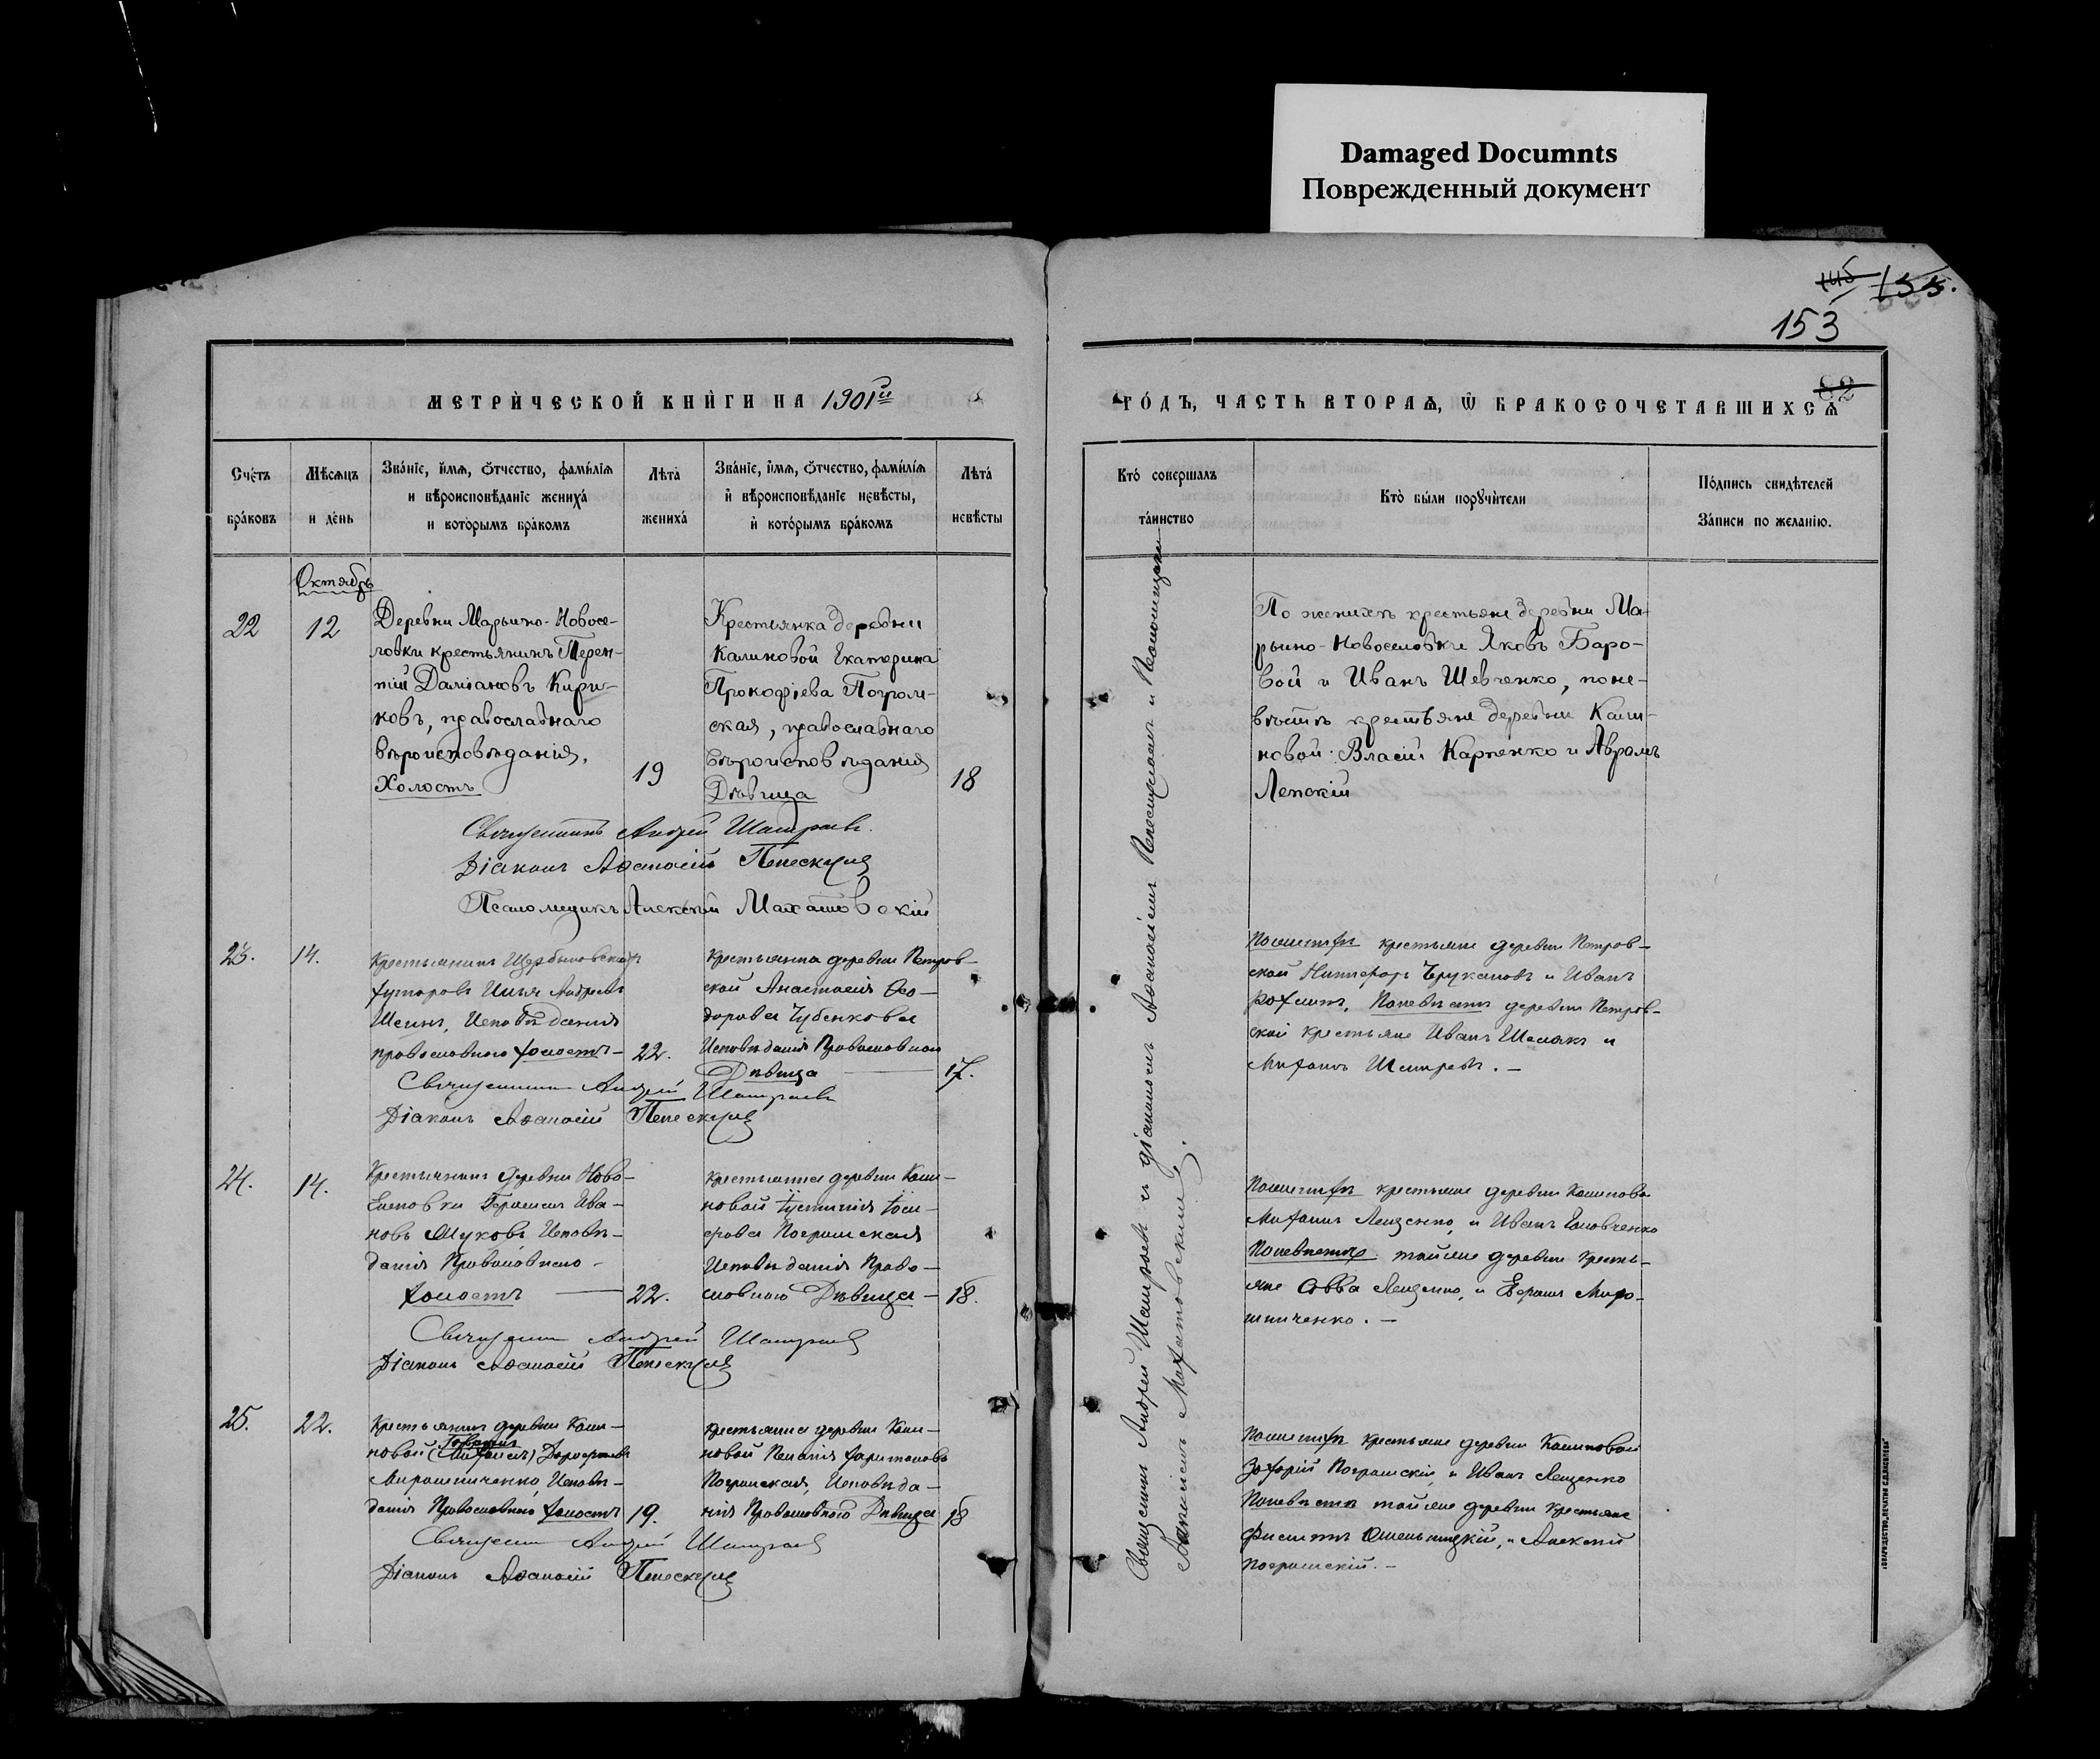 Damaged Documnts
Поврежденный документ
145 155.
153
82
МЕТРИЧЕСКОЙ КНИГИ НА 1901й
ГОДЪ, ЧАСТЬ ВТОРАЯ, Ѿ БРАКОСОЧЕТАВШИХСЯ
Счетъ браковъ
Мѣсяцъ и день
Званіе, имя, отчество, фамилія
и вѣроисповѣданіе жениха
и которымъ бракомъ
Лѣта жениха
Званіе, имя, отчество, фамилія
и вѣроисповѣданіе невѣсты,
и которымъ бракомъ
Лѣта невѣсты
Кто совершалъ таинство
Кто были поручители
Подпись свидѣтелей
Записи по желанію.
Октябрь
22
12
Деревни Марьино-Новосе-
ловки крестьянинъ Терен-
тій Даміановъ Кири-
ковъ, православнаго
вѣроисповѣданія,
Холостъ
19
Крестьянка деревни
Калиновой Екатерина
Прокофіева Погром-
ская, православнаго
вѣроисповѣданія
Дѣвица
18
По женихѣ крестьяне деревни Ма-
рьино-Новоселовки Яковъ Баро-
вой и Иванъ Шевченко, по не-
вѣстѣ крестьяне деревни Кали-
новой: Власій Карпенко и Аврамъ
Лепскій
Священникъ Андрей
Діаконъ Аѳанасій
Псаломщикъ Алексѣй Махатовскій
23.
14.
Крестьянинъ
хуторовъ Илья Андреевъ
Шеинъ, Исповѣданія
православного холостъ
22.
Крестьянка деревни Петров-
ской Анастасія Ѳео-
дорова Чубенкова
Исповѣданія Православного
Дѣвица
17.
По женихѣ крестьяне деревни Петров-
ской Никифоръ и Иванъ
По невѣстѣ деревни Петров-
ской крестьяне Иванъ и
Михаилъ
Священникъ Андрей
Діаконъ Аѳанасій
24.
14.
Крестьянинъ деревни Ново-
Герасимъ Ива-
новъ Жуковъ Исповѣ-
данія Православного
холостъ
22.
Крестьянка деревни Кали-
новой Іустинія Іоси-
фова Погромская
Исповѣданія Право-
славного Дѣвица
18.
По женихѣ крестьяне деревни Калиновой
Михаилъ Лещенко, и Иванъ Головченко
По невѣстѣ той же деревни кресть-
яне Савва Лещенко, и Мирош-
ниченко.
Священникъ Андрей
Діаконъ Аѳанасій
25.
22.
Крестьянинъ деревни Кали-
новой (Михаилъ)
Мирошниченко, Исповѣ-
данія Православного холостъ
19.
Крестьянка деревни Кали-
новой Пелагія Харитонова
Погромская, Исповѣда-
нія Православного Дѣвица
18
По женихѣ крестьяне деревни Калиновой
Захарій Погромскій, и Иванъ Лещенко
По невѣстѣ той же деревни крестьяне
и Алексѣй
Погромскій.
Священникъ Андрей
Діаконъ Аѳанасій
Священникъ Андрей съ діакономъ Аѳанасіемъ и Псаломщикомъ
Алексіемъ Махатовскимъ.